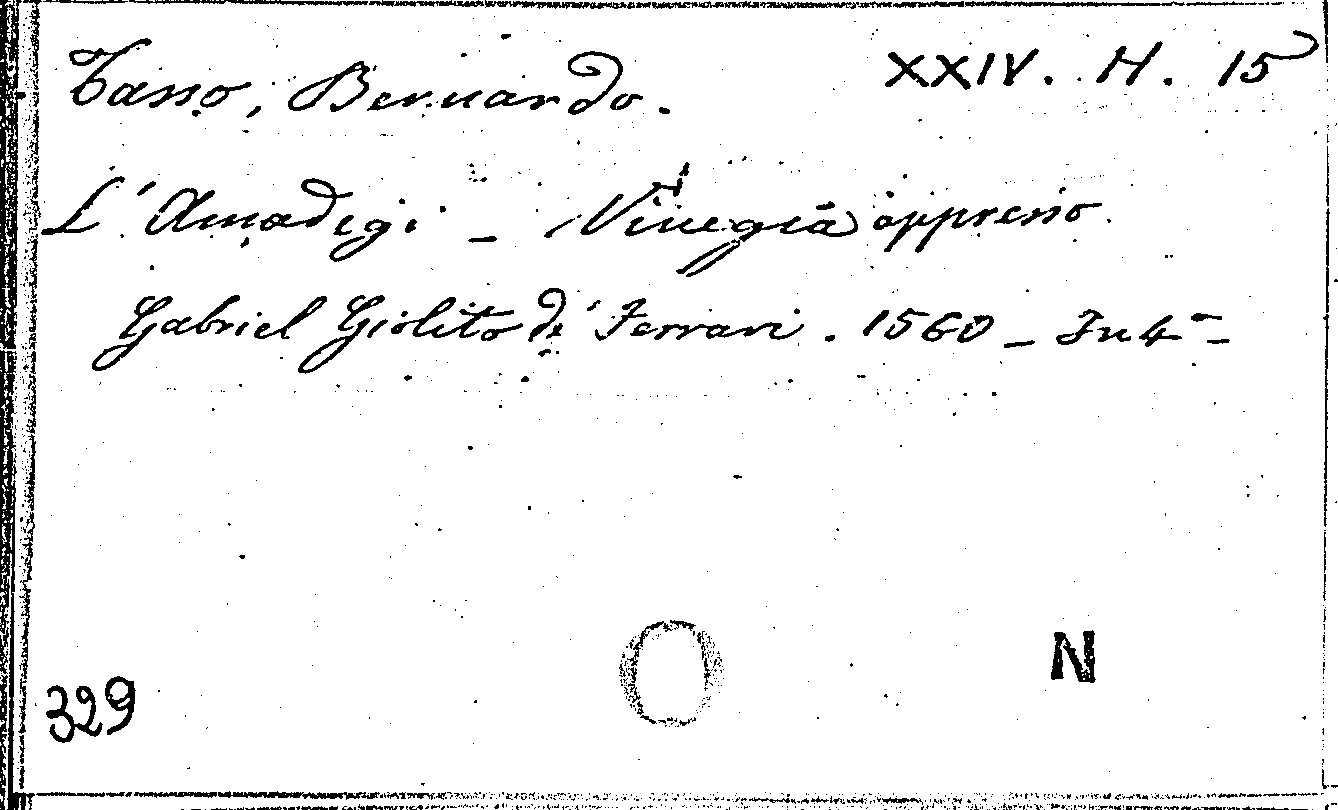 Tasso, Bernardo. XXIV. H. 15
L'Amadigi - Vinegia appresso
Gabriel Giolito de' Ferrari. 1560 - In 4° -
O N
329